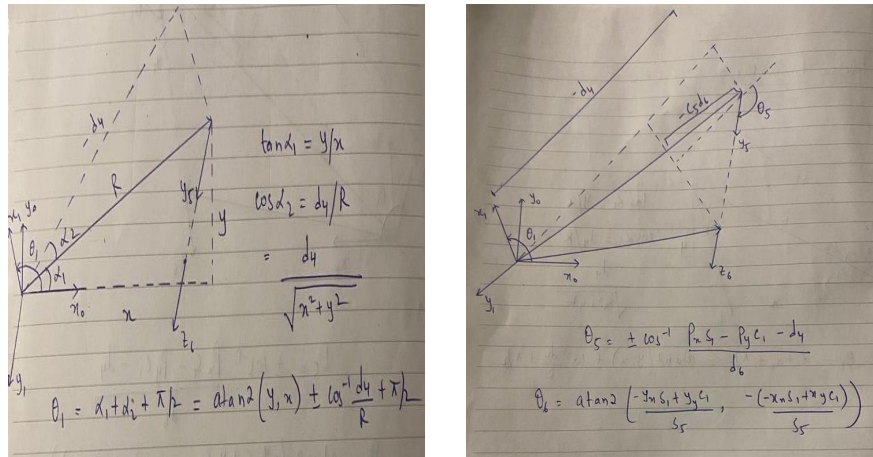 d4
R
x1
y0
θ1
α2
α1
x0
x
y1
y5
y
z6
tanα1 = y/x
cosα2 = d4/R
= d4/√(x²+y²)
θ1 = α1+α2+π/2 = atan2(y,x) ± cos⁻¹ d4/R + π/2
-d4
-c5d6
θ5
y5
x1
y0
θ1
x0
y1
z6
θ5 = ± cos⁻¹ (Px s1 - Py c1 - d4)/d6
θ6 = atan2((-yx s1 + yy c1)/s5, -(-xx s1 + xy c1)/s5)